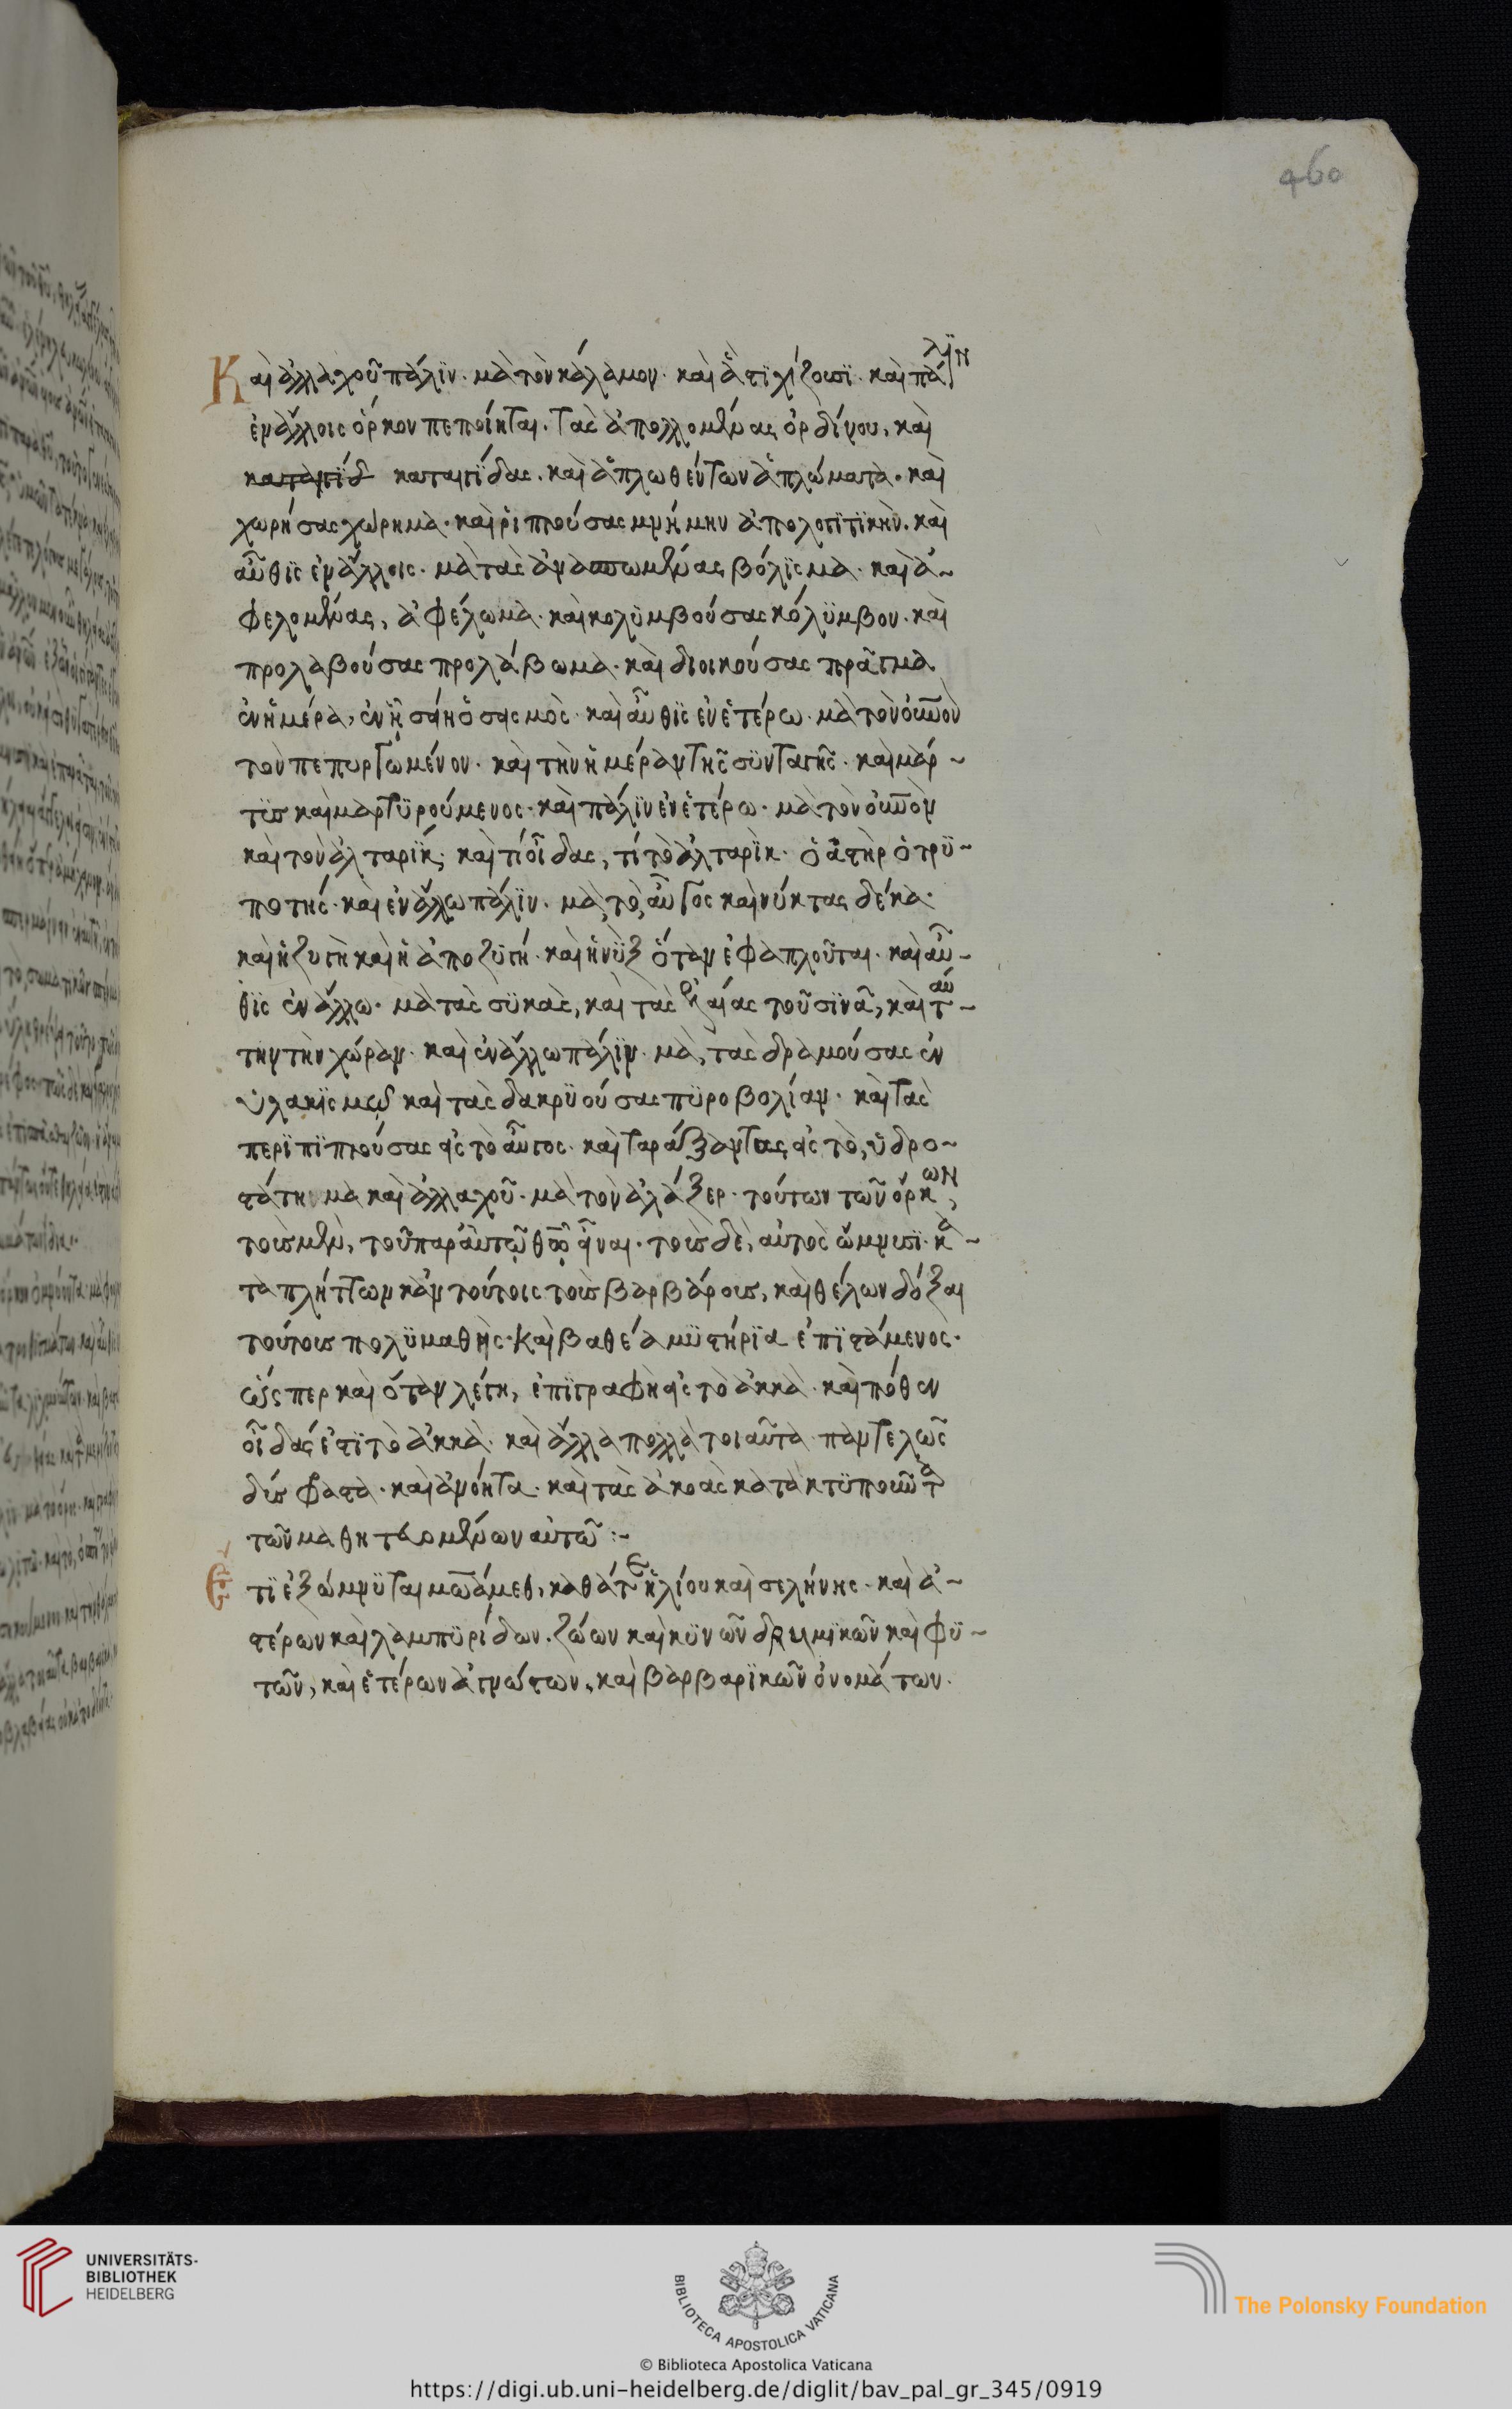 460
Καὶ ἀλλαχοῦ πάλϊν· μὰ τὸν κάλαμον· καὶ ἃ τϊ χίζουσϊ· καὶ πάλϊν
ἐν ἄλλοις ὅρκον πεποίηται· τὰς ἀπολλομένας ὀρδίνου, καὶ
καταιγίδ καταιγίδας. καὶ ἁπλωθέντων ἁπλώματα· καὶ
χωρήσας χώρημα· καὶ ῥιπτούσας μνήμην ἀπολογϊτϊκὴν. καὶ
αὖθϊς ἐν ἄλλοις· μὰ τὰς ἀνασπωμένας βόλϊσμα· καὶ ἀ-
φελομένας, ἀφέλωμα· καὶ κολϋμβούσας κόλϋμβον· καὶ
προλαβούσας προλάβωμα· καὶ διοικούσας πρᾶγμα.
ἐν ἡμέρα, ἐν ᾗ σείη ὁ σεισμὸς· καὶ αὖθϊς ἐν ἑτέρω· μὰ τὸν οἶκον
τὸν πεπυργωμένον· καὶ τὴν ἡμέραν τῆς σϋνταγῆς· καὶ μάρ-
τϋς καὶ μαρτϋρούμενος· καὶ πάλϊν ἐν ἑτέρω· μὰ τὸν οὐρανὸν
καὶ τὸν ἀλταρϊκ· καὶ τί οἶδας, τί τὸ ἀλταρϊκ· ὁ ἀστὴρ ὁ τρϋ-
πστής· καὶ ἐν ἄλλω πάλϊν· μὰ τὸ αὖγος καὶ νύκτας δέκα·
καὶ ἡ ζυγὴ καὶ ἡ ἀποζϋγή· καὶ ἡ νϋξ ὅταν ἐφαπλοῦται· καὶ αὖ-
θϊς ἐν ἄλλω· μὰ τὰς σϋκὰς, καὶ τὰς ἐλαίας τοῦ σϊνᾶ, καὶ ταύ-
την τὴν χώραν· καὶ ἐν ἄλλω πάλϊν· μὰ, τὰς δραμούσας ἐν
ὑλακϊσμῶ καὶ τὰς δακρϋούσας πϋροβολίαν· καὶ τὰς
περϊπϊπτούσας εἰς τὸ αὖγος· καὶ ταράξαντας εἰς τὸ, ὑδρο-
στάτη μα καὶ ἀλλαχοῦ· μὰ τὸν ἀλάξερ· τούτων τῶν ὅρκων,
τοὺς μὲν, τοῦ παρ' αὐτῷ θεοῦ εἶναι· τοὺς δὲ, αὐτὸς ὤμνυσϊ· κα-
ταπλήττων κἀν τούτοις τοὺς βαρβάρους, καὶ θέλων δόξαι
τούτοις πολϋμαθὴς· καὶ βαθέα μϋστήρϊα ἐπϊστάμενος·
ὥσπερ καὶ ὅταν λέγη, ἐπϊγραφὴ εἰς τὸ ἀκκὰ· καὶ πόθεν
οἶδας ἐτϊ τὸ ἀκκὰ· καὶ ἄλλα πολλὰ τοιαῦτα παντελῶς
δύσφατα· καὶ ἀνόητα· καὶ τὰς ἀκοὰς κατακτϋποῦντα
τῶν μαθητευομένων αὐτῶ:-
Ἔτϊ ἐξώμνϋται μωάμεθ, καθάπερ ἡλίου καὶ σελήνης· καὶ ἀ-
στέρων καὶ λαμπϋρίδων. ζώων καὶ κϋνῶν δρυμϊκῶν καὶ φϋ-
τῶν, καὶ ἑτέρων ἀγνώστων, καὶ βαρβαρϊκῶν ὀνομάτων.
UNIVERSITÄTS-
BIBLIOTHEK
HEIDELBERG
BIBLIOTECA APOSTOLICA VATICANA
© Biblioteca Apostolica Vaticana
The Polonsky Foundation
https://digi.ub.uni-heidelberg.de/diglit/bav_pal_gr_345/0919